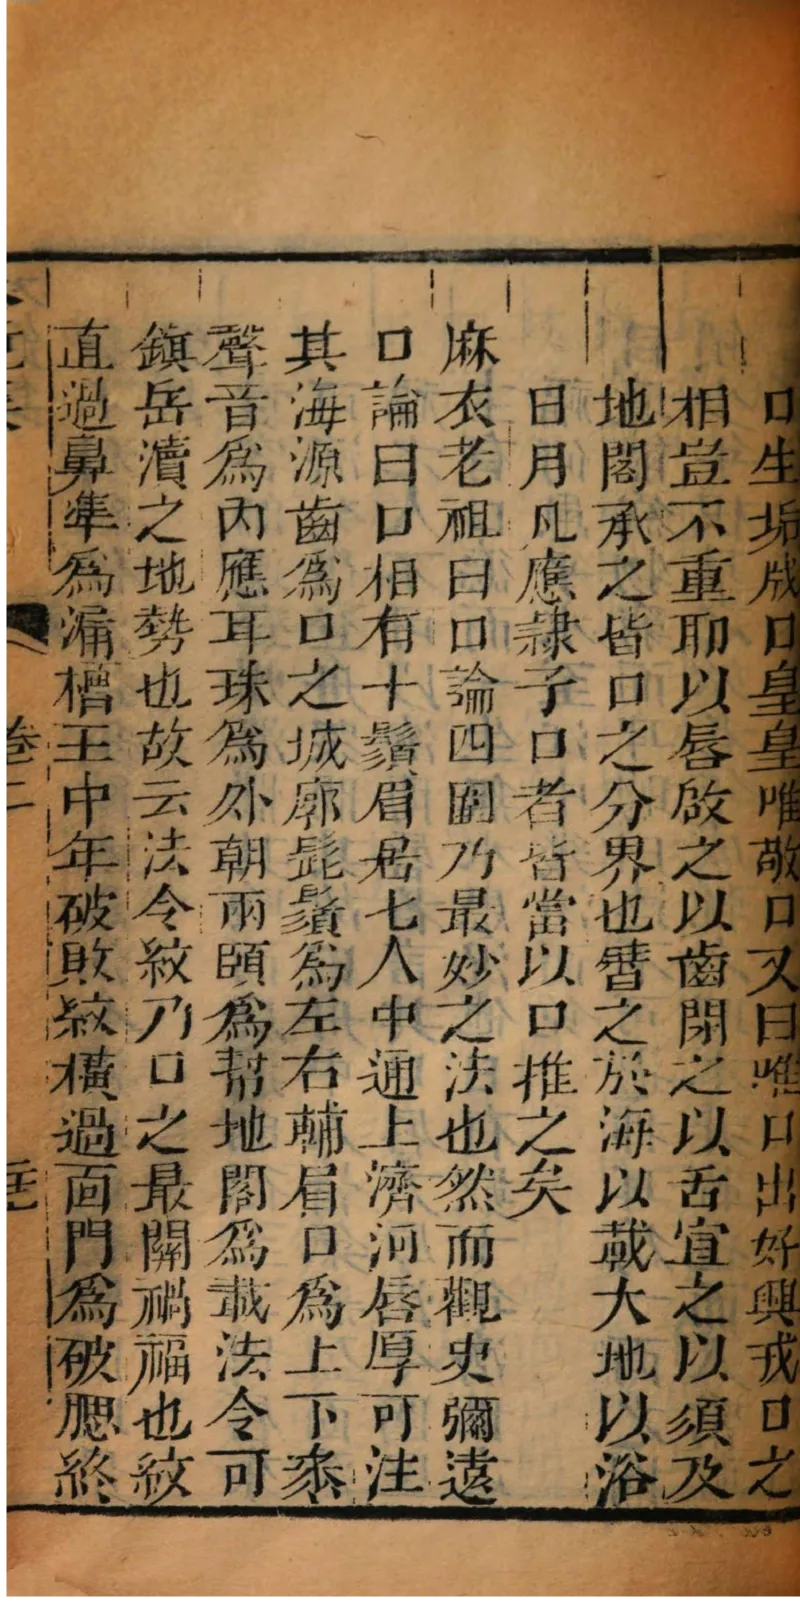 口生垢戕口皇皇唯敬口又曰唯口出好興戎口之
相豈不重耶以唇啟之以齒閉之以舌宣之以須及
地閣承之皆口之分界也譬之於海以載大地以浴
日月凡應隸子口者皆當以口推之矣
麻衣老祖曰口論四圍乃最妙之法也然而觀史彌遠
口論曰口相有十鬚眉居七人中通上濟河唇厚可注
其海源齒為口之城廓髭鬚為左右輔眉口為上下泰
聲音為內應耳珠為外朝兩頤為幇地閣為載法令可
鎮岳瀆之地勢也故云法令紋乃口之最關禍福也紋
直過鼻準為漏槽主中年破敗紋橫過面門為破腮終
卷二